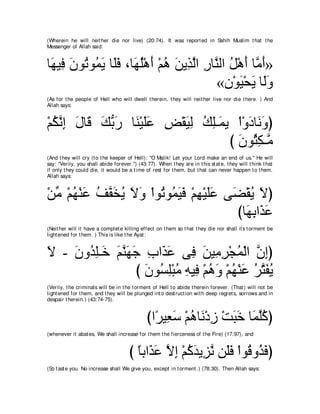 (Wherein he will neither die nor live) (20:74). It was reported in Sahih Muslim that the
Messenger of Allah said:
«أَمَّا أَهْلُ النَّارِ الَّذِينَ هُمْ أَهْلُهَا، فَلَا يَمُوتُونَ فِيهَا
وَلَا يَحْيَوْنَ»
(As for the people of Hell who will dwell therein, they will neither live nor die there. ) And
Allah says:
(وَنَادَوْاْ يمَـلِكُ لِيَقْضِ عَلَيْنَا رَبُّكَ قَالَ إِنَّكُمْ
مَّـكِثُونَ )
(And they will cry (to the keeper of Hell): "O Malik! Let your Lord make an end of us.'' He will
say: "Verily, you shall abide forever.'') (43:77). When they are in this state, they will think that
if only they could die, it would be a time of rest for them, but that can never happen to them.
Allah says:
(لاَ يُقْضَى عَلَيْهِمْ فَيَمُوتُواْ وَلاَ يُخَفَّفُ عَنْهُمْ مِّنْ
عَذَابِهَا)
(Neither will it have a complete killing effect on them so that they die nor shall its torment be
lightened for them. ) This is like the Ayat:
(إِنَّ الْمُجْرِمِينَ فِى عَذَابِ جَهَنَّمَ خَـلِدُونَ - لاَ
يُفَتَّرُ عَنْهُمْ وَهُمْ فِيهِ مُبْلِسُونَ )
(Verily, the criminals will be in the torment of Hell to abide therein forever. (That) will not be
lightened for them, and they will be plunged into destruction with deep regrets, sorrows and in
despair therein.) (43:74-75).
(كُلَّمَا خَبَتْ زِدْنَاهُمْ سَعِيرًا)
(whenever it abates, We shall increase for them the fierceness of the Fire) (17:97), and
(فَذُوقُواْ فَلَن نَّزِيدَكُمْ إِلاَّ عَذَاباً )
(So taste you. No increase shall We give you, except in torment.) (78:30). Then Allah says: